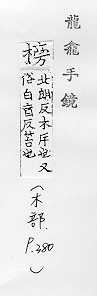 龍龕手鏡
北朗反木片也又
俗白盲反笞也
（木部
P.380
）